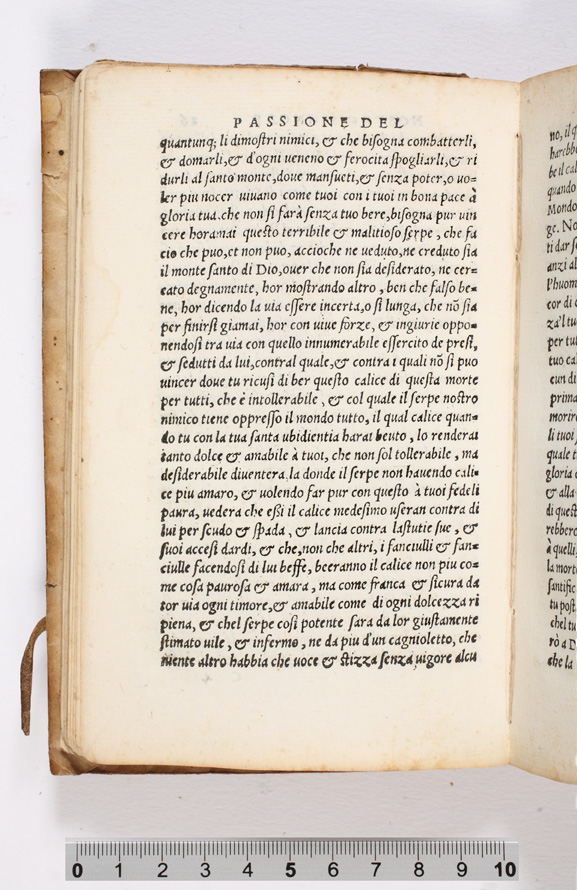 PASSIONE DEL
quantunq; li dimostri nimici, & che bisogna combatterli,
& domarli, & d'ogni ueneno & ferocita spogliarli, & ri
durli al santo monte, doue mansueti, & senza poter, o uo=
ler piu nocer uiuano come tuoi con i tuoi in bona pace à
gloria tua. che non si farà senza tuo bere, bisogna pur uin
cere horamai questo terribile & malitioso serpe, che fa
cio che puo, et non puo, accioche ne ueduto, ne creduto sia
il monte santo di Dio, ouer che non sia desiderato, ne cer=
cato degnamente, hor mostrando altro, ben che falso be=
ne, hor dicendo la uia essere incerta, o si lunga, che nõ sia
per finirsi giamai, hor con uiue forze, & ingiurie oppo=
nendosi tra uia con quello innumerabile essercito de presi,
& sedutti da lui, contral quale, & contra i quali nõ si puo
uincer doue tu ricusi di ber questo calice di questa morte
per tutti, che è intollerabile, & col quale il serpe nostro
nimico tiene oppresso il mondo tutto, il qual calice quan=
do tu con la tua santa ubidientia harai beuto, lo renderai
tanto dolce & amabile à tuoi, che non sol tollerabile, ma
desiderabile diuentera, la donde il serpe non hauendo cali=
ce piu amaro, & uolendo far pur con questo à tuoi fedeli
paura, uedera che essi il calice medesimo useran contra di
lui per scudo & spada, & lancia contra lastutie sue, &
suoi accesi dardi, & che, non che altri, i fanciulli & fan=
ciulle facendosi di lui beffe, beeranno il calice non piu co=
me cosa paurosa & amara, ma come franca & sicura da
tor uia ogni timore, & amabile come di ogni dolcezza ri
piena, & chel serpe così potente sara da lor giustamente
stimato uile, & infermo, ne da piu d'un cagnioletto, che
niente altro habbia che uoce & stizza senza uigore alcu
no, il q
harebb
be il cal
quando
Mondo
ge. No
ti dar s
anzi al
l'huom
cor di
za'l tu
per tu
tuo ca
cun di
prima
morir
li tuoi
quale t
gloria
& alla
di quest
rebbero
à quelli
la mort
santific
tu post
chel tu
rò a D
che la
0 1 2 3 4 5 6 7 8 9 10